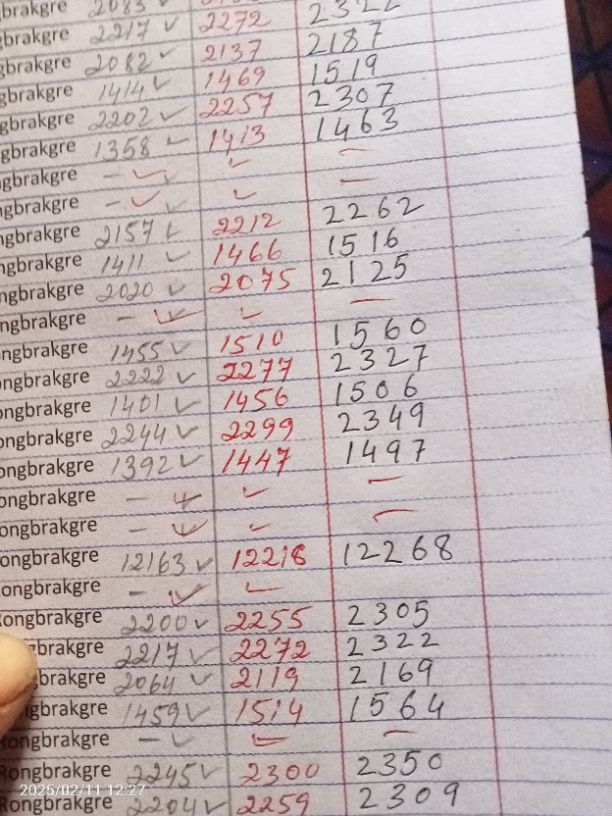 gbrakgre 2083 ✓
gbrakgre 2217 ✓ 2272 2322
gbrakgre 2082 ✓ 2137 2187
gbrakgre 1414 ✓ 1469 1519
gbrakgre 2202 ✓ 2257 2307
gbrakgre 1358 ✓ 1413 1463
gbrakgre - ✓ ✓ -
ngbrakgre - ✓ ✓ -
ngbrakgre 2157 ✓ 2212 2262
ngbrakgre 1411 ✓ 1466 1516
ngbrakgre 2020 ✓ 2075 2125
ngbrakgre - ✓ ✓ -
ongbrakgre 1455 ✓ 1510 1560
ongbrakgre 2222 ✓ 2277 2327
ongbrakgre 1401 ✓ 1456 1506
ongbrakgre 2244 ✓ 2299 2349
ongbrakgre 1392 ✓ 1447 1497
ongbrakgre - ✓ ✓ -
ongbrakgre - ✓ ✓ -
ongbrakgre 12163 ✓ 12218 12268
ongbrakgre - ✓ ✓
Rongbrakgre 2200 ✓ 2255 2305
gbrakgre 2217 ✓ 2272 2322
gbrakgre 2064 ✓ 2119 2169
ngbrakgre 1459 ✓ 1514 1564
Rongbrakgre - ✓ - -
Rongbrakgre 2245 ✓ 2300 2350
2025/02/11 12:27
Rongbrakgre 2204 ✓ 2259 2309